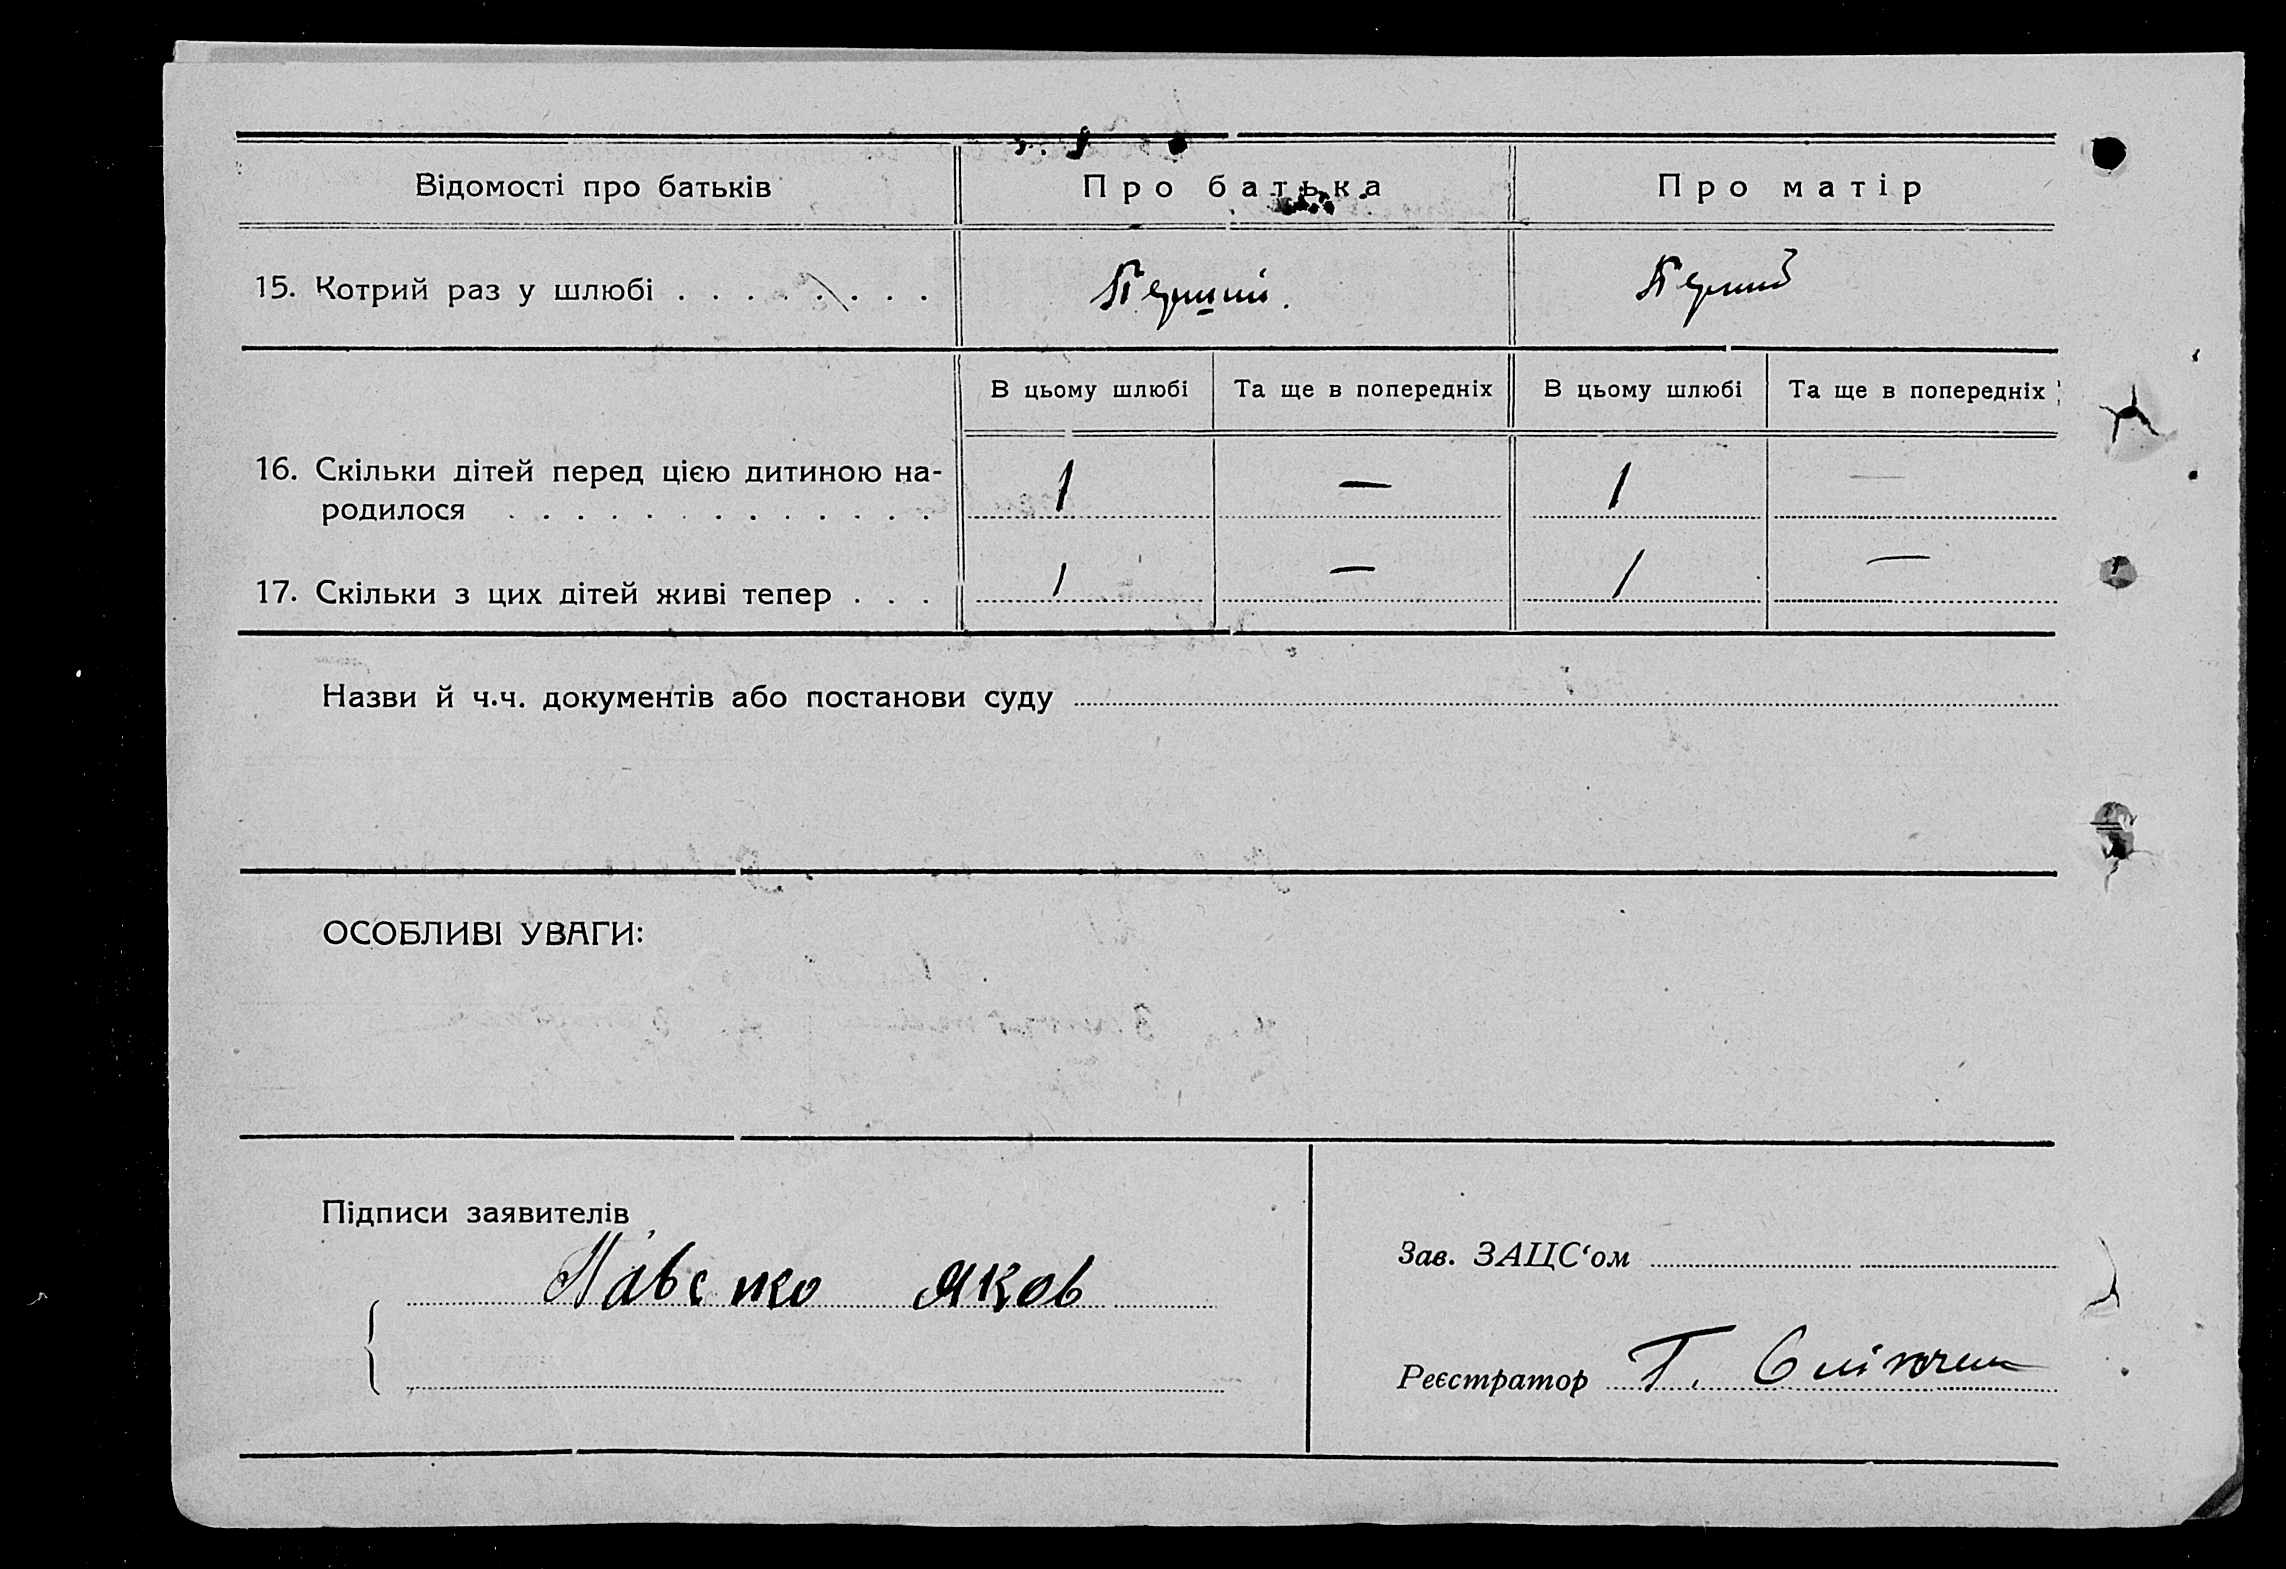 Відомості про батьків Про батька Про матір
15. Котрий раз у шлюбі . . . . . . . . Перший. Перший
В цьому шлюбі Та ще в попередніх В цьому шлюбі Та ще в попередніх
16. Скільки дітей перед цією дитиною на-
родилося . . . . . . . . . . . . . 1 — 1 —
17. Скільки з цих дітей живі тепер . . . 1 — 1 —
Назви й ч.ч. документів або постанови суду
ОСОБЛИВІ УВАГИ:
Підписи заявителів
Зав. ЗАЦС‘ом
Яков
Реєстратор Г.